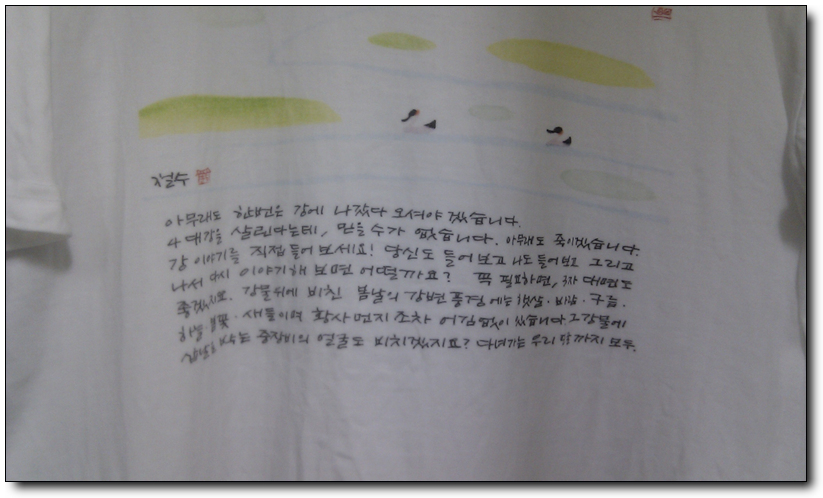 철수
아무래도 한번은 강에 나갔다 오셔야 겠습니다.
4대강을 살린다는데, 믿을 수가 없습니다. 아무래도 죽이겠습니다.
강 이야기를 직접 들어 보세요! 당신도 들어보고 나도 들어보고 그리고
나서 다시 이야기해 보면 어떨까요? 꼭 필요하면, 3자 대면도
좋겠지요. 강물위에 비친 봄날의 강변풍경에는 햇살·바람·구름·
하늘·봄꽃·새들이며 황사먼지조차 어김없이 있습니다. 그강물에
삽날 중장비의 얼굴도 비치겠지요? 다녀가는 우리 까지 모두.